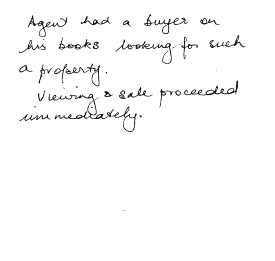 Agent had a buyer on
his books looking for such
a property.
Viewing & sale proceeded
immediately.